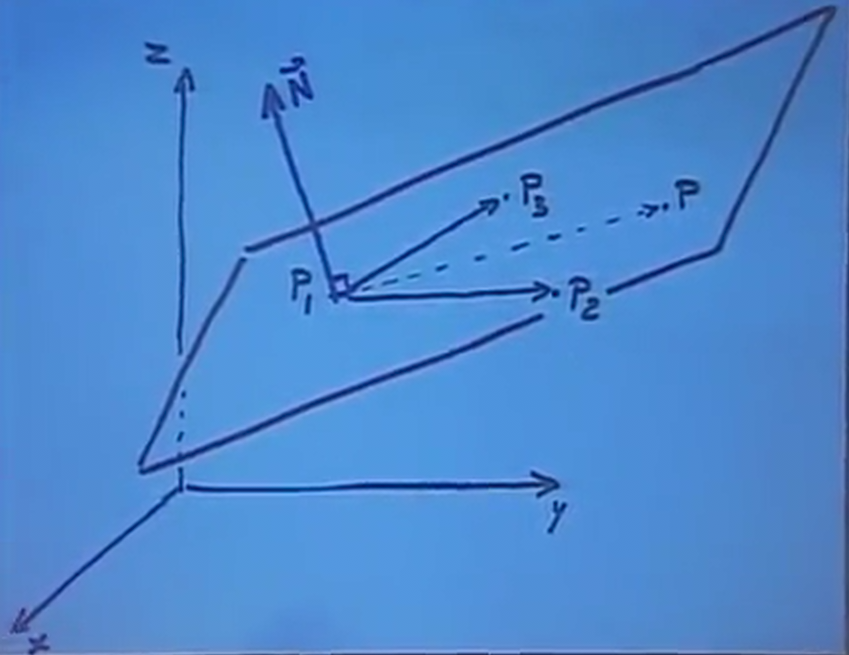 z
N⃗
P₃
P
P₁
P₂
y
x